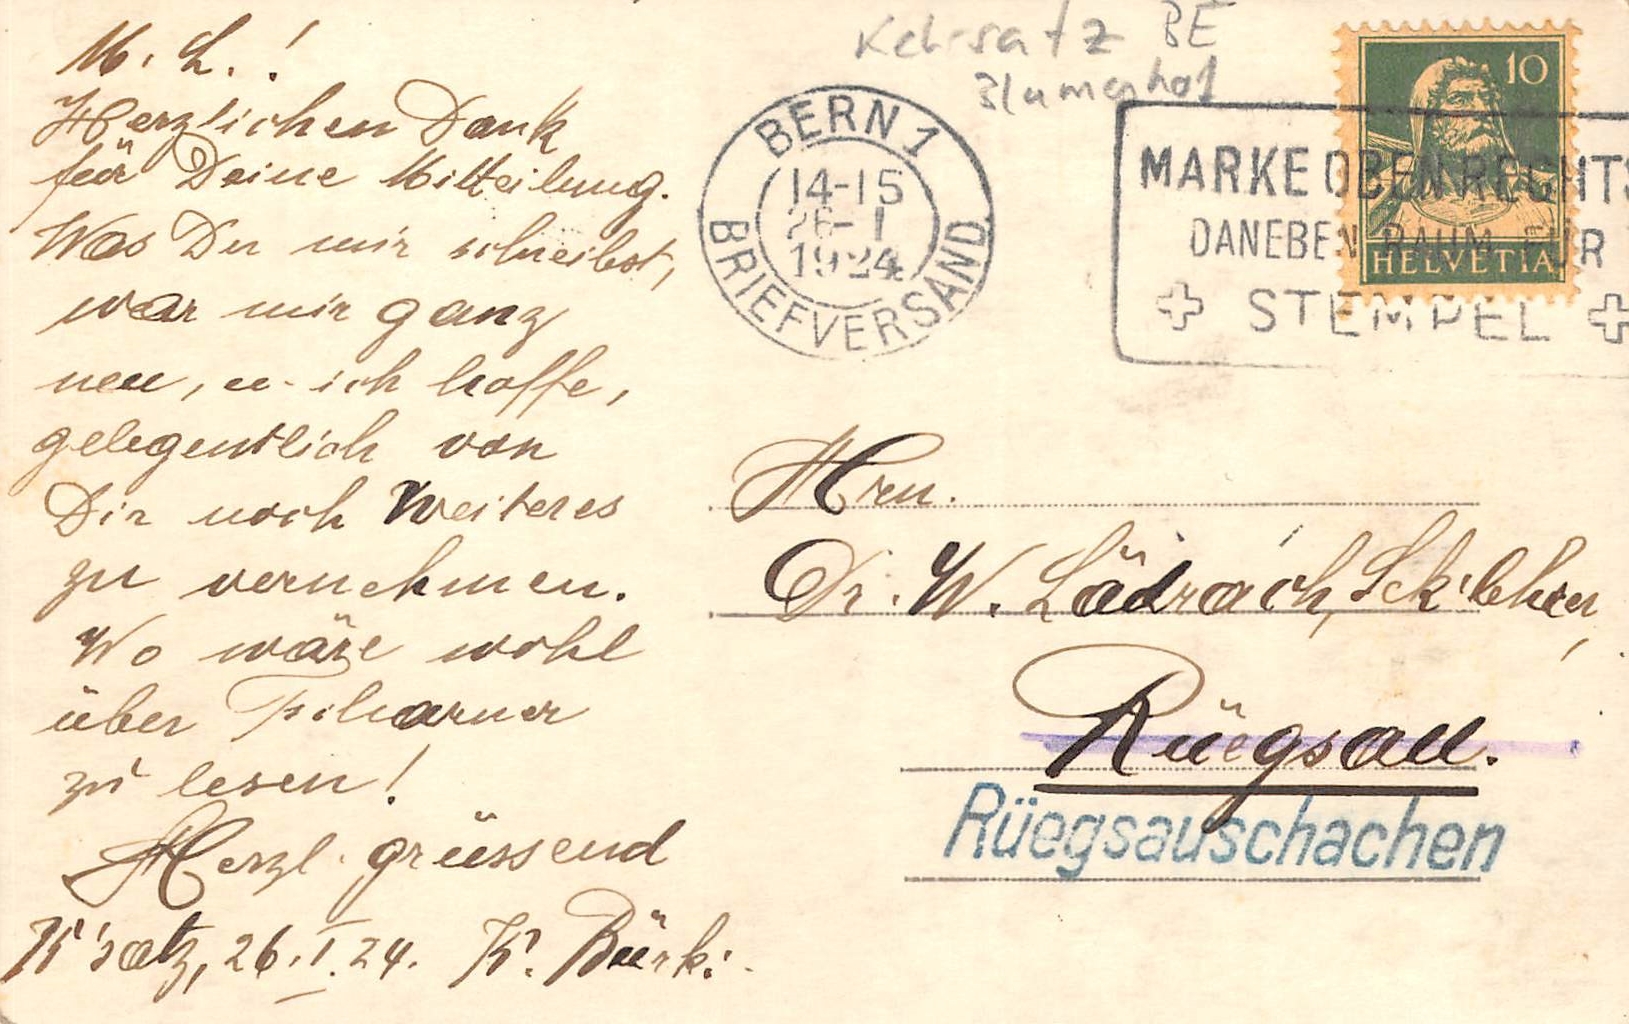 M. L.!
Herzlichen Dank
für Deine Mitteilung.
Was Du mir schreibst,
war mir ganz
neu, u. ich hoffe,
gelegentlich von
Dir noch Weiteres
zu vernehmen.
Wo wäre wohl
über Tscharner
zu lesen!
Herzl. grüssend
K'satz, 26.I.24. K. Bürki.
Kehrsatz BE
Blumenhof
BERN 1
14-15
26-I
1924
BRIEFVERSAND
MARKE OBEN RECHTS
DANEBEN RAUM FÜR
+ STEMPEL +
10
HELVETIA
Hrn.
Dr. W. Lädrach, Sek'lehrer,
Rüegsau.
Rüegsauschachen